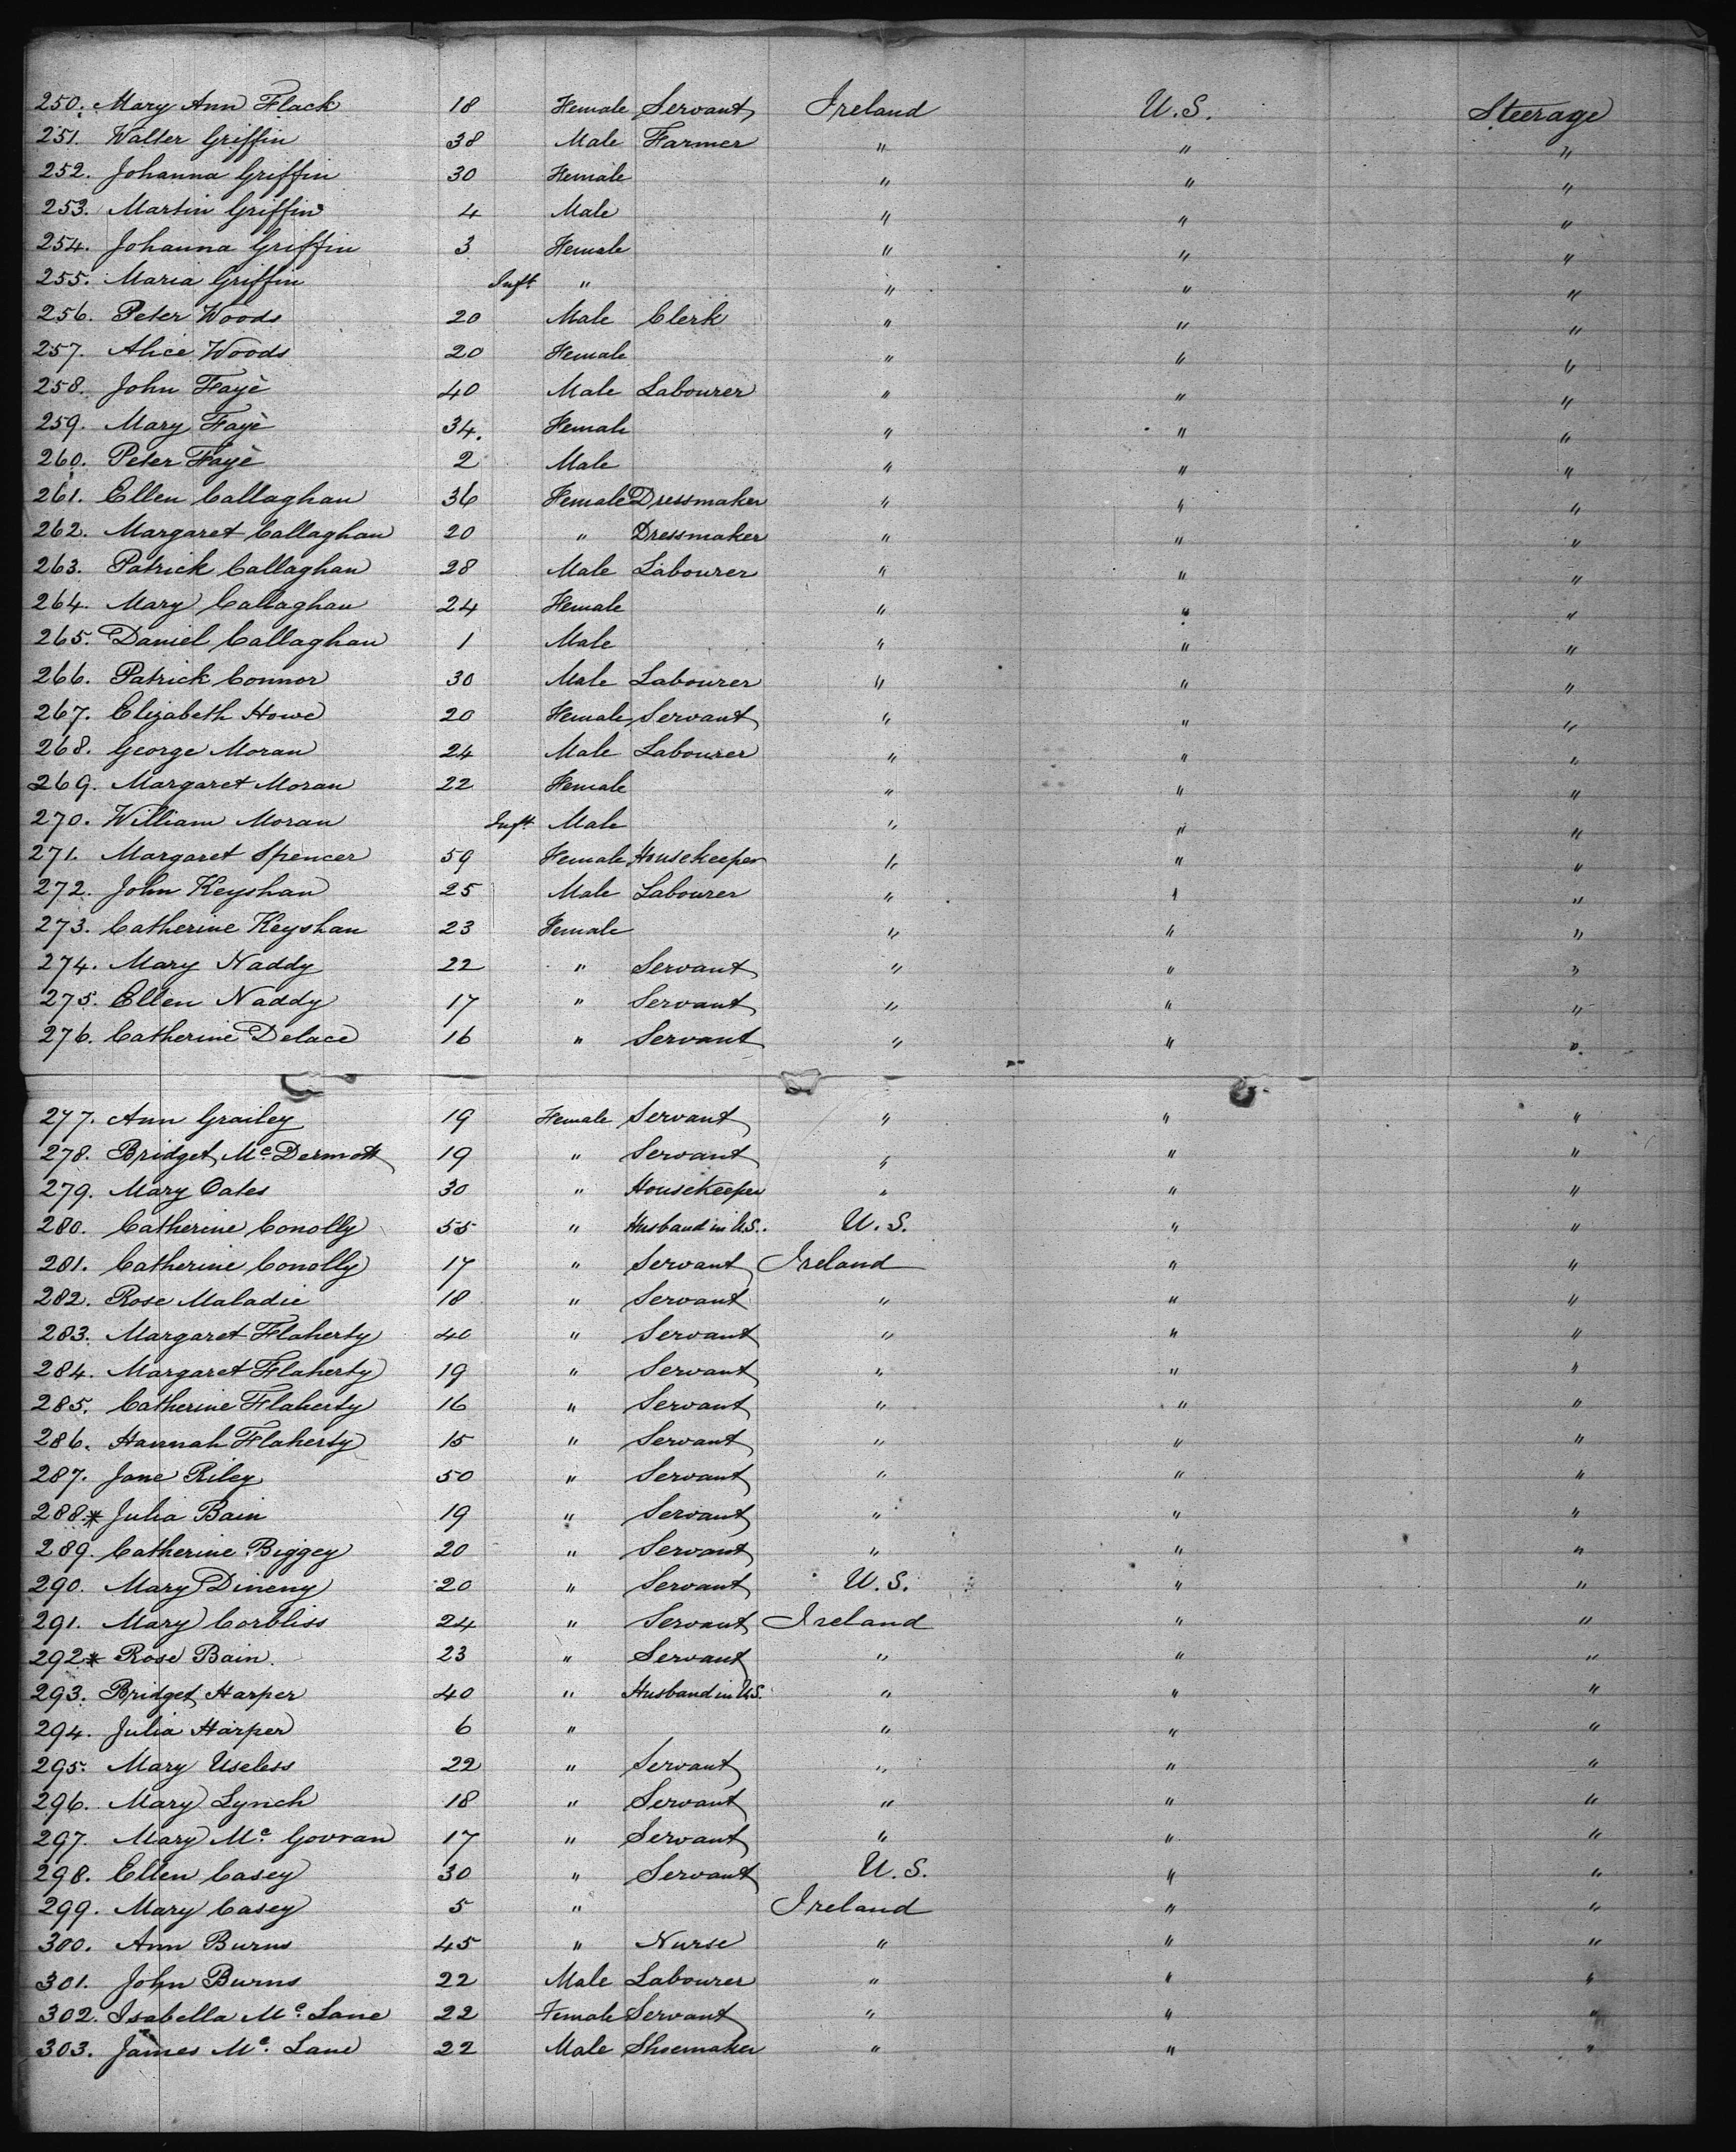 250. Mary Ann Flack 18 Female Servant Ireland U.S. Steerage
251. Walter Griffin 38 Male Farmer " " "
252. Johanna Griffin 30 Female " " "
253. Martin Griffin 4 Male " " "
254. Johanna Griffin 3 Female " " "
255. Maria Griffin Inft " " " "
256. Peter Woods 20 Male Clerk " " "
257. Alice Woods 20 Female " " "
258. John Fayè 40 Male Labourer " " "
259. Mary Fayè 34. Female " " "
260. Peter Fayè 2 Male " " "
261. Ellen Callaghan 36 Female Dressmaker " " "
262. Margaret Callaghan 20 " Dressmaker " " "
263. Patrick Callaghan 28 Male Labourer " " "
264. Mary Callaghan 24 Female " " "
265. Daniel Callaghan 1 Male " " "
266. Patrick Connor 30 Male Labourer " " "
267. Elizabeth Howe 20 Female Servant " " "
268. George Moran 24 Male Labourer " " "
269. Margaret Moran 22 Female " " "
270. William Moran Inft Male " " "
271. Margaret Spencer 59 Female Housekeeper " " "
272. John Keyshan 25 Male Labourer " " "
273. Catherine Keyshan 23 Female " " "
274. Mary Naddy 22 " Servant " " "
275. Ellen Naddy 17 " Servant " " "
276. Catherine Delace 16 " Servant " " "
277. Ann Grailey 19 Female Servant " " "
278. Bridget Mc. Dermott 19 " Servant " " "
279. Mary Oates 30 " Housekeeper " " "
280. Catherine Conolly 55 " Husband in U.S. U.S. " "
281. Catherine Conolly 17 " Servant Ireland " "
282. Rose Maladie 18 " Servant " " "
283. Margaret Flaherty 40 " Servant " " "
284. Margaret Flaherty 19 " Servant " " "
285. Catherine Flaherty 16 " Servant " " "
286. Hannah Flaherty 15 " Servant " " "
287. Jane Riley 50 " Servant " " "
288.* Julia Bain 19 " Servant " " "
289. Catherine Biggey 20 " Servant " " "
290. Mary Dineny 20 " Servant U.S. " "
291. Mary Corbliss 24 " Servant Ireland " "
292* Rose Bain. 23 " Servant " " "
293. Bridget Harper 40 " Husband in U.S. " " "
294. Julia Harper 6 " " " "
295. Mary Useless 22 " Servant " " "
296. Mary Lynch 18 " Servant " " "
297. Mary Mc. Govran 17 " Servant " " "
298. Ellen Casey 30 " Servant U.S. " "
299. Mary Casey 5 " Ireland " "
300. Ann Burns 45 " Nurse " " "
301. John Burns 22 Male Labourer " " "
302. Isabella Mc. Lane 22 Female Servant " " "
303. James Mc. Lane 22 Male Shoemaker " " "